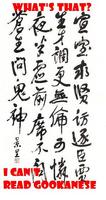 WHAT'S THAT?
宣室求賢訪逐臣賈
生才調更無倫可憐
夜半虛前席不問
蒼生問鬼神
I CAN'T
READ GOOKANESE